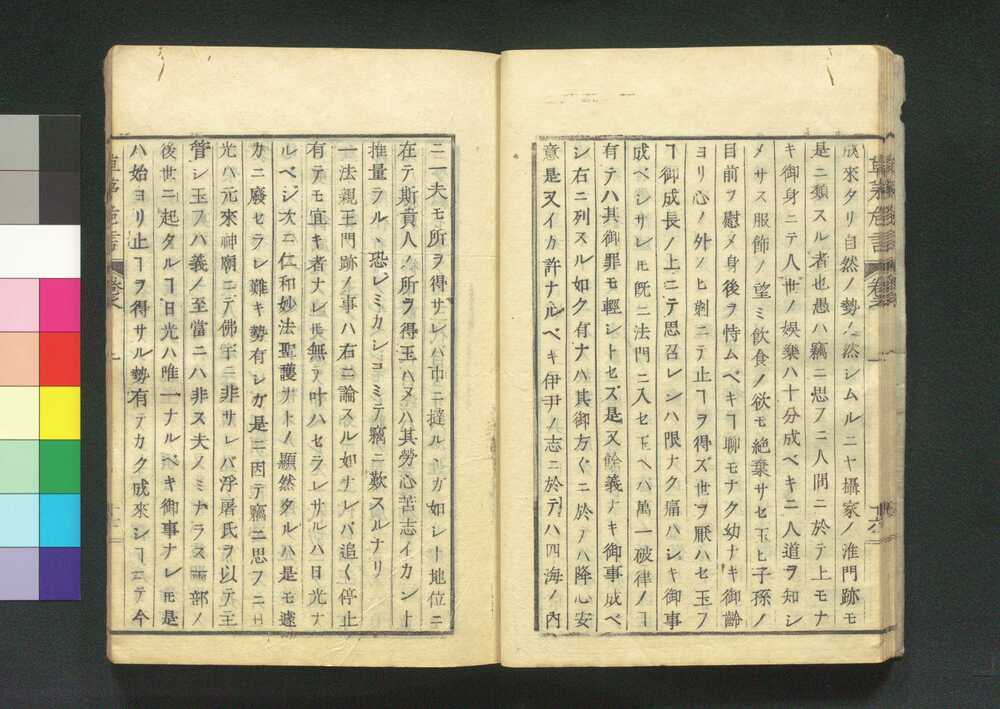 成來タリ自然ノ勢ノ然シムルニヤ攝家ノ准門跡モ
是ニ類スル者也愚ハ竊ニ思フニ人間ニ於テ上モナ
キ御身ニテ人世ノ娯樂ハ十分成ベキニ人道ヲ知シ
メサス服飾ノ望ミ飲食ノ欲モ絶棄サセ玉ヒ子孫ノ
目前ヲ慰メ身後ヲ恃ムベキヿ聊モナク幼ナキ御齡
ヨリ心ノ外ノヒ剃ニテ止ヿヲ得ズ世ヲ厭ハセ玉フ
ヿ御成長ノ上ニテ思召レンハ限ナク痛ハシキ御事
成ベシサレ𪜈既ニ法門ニ入セ玉ヘバ萬一破律ノヿ
有テハ其御罪モ輕シトセズ是又餘義ナキ御事成ベ
シ右ニ列スル如ク有ナハ其御方〱ニ於テハ降心安
意是又イカ許ナルベキ伊尹ノ志ニ於テハ四海ノ内
ニ一夫モ所ヲ得サレハ市ニ撻ルヽガ如シト地位ニ
在テ斯貴人ノ所ヲ得玉ハヌハ其勞心苦志イカント
推量ラルヽ恐レミカシコミテ竊ニ歎スルナリ
一法親王門跡ノ事ハ右ニ論スル如ナレバ追〱停止
有テモ宜キ者ナレ𪜈無テ叶ハセラレサルハ日光ナ
ルベジ次ニ仁和妙法聖護ナトノ顯然タルハ是モ遽
カニ廢セラレ難キ勢有シガ是ニ因テ竊ニ思フニ日
光ハ元來神廟ニテ佛宇ニ非サレバ浮屠氏ヲ以テ主
管シ玉フハ義ノ至當ニハ非ス夫ノミナラス兩部ノ
後世ニ起タルヿ日光ハ唯一ナルベキ御事ナレ𪜈是
ハ始ヨリ止ヿヲ得サル勢有テカク成來シヿニテ今
草茅危言